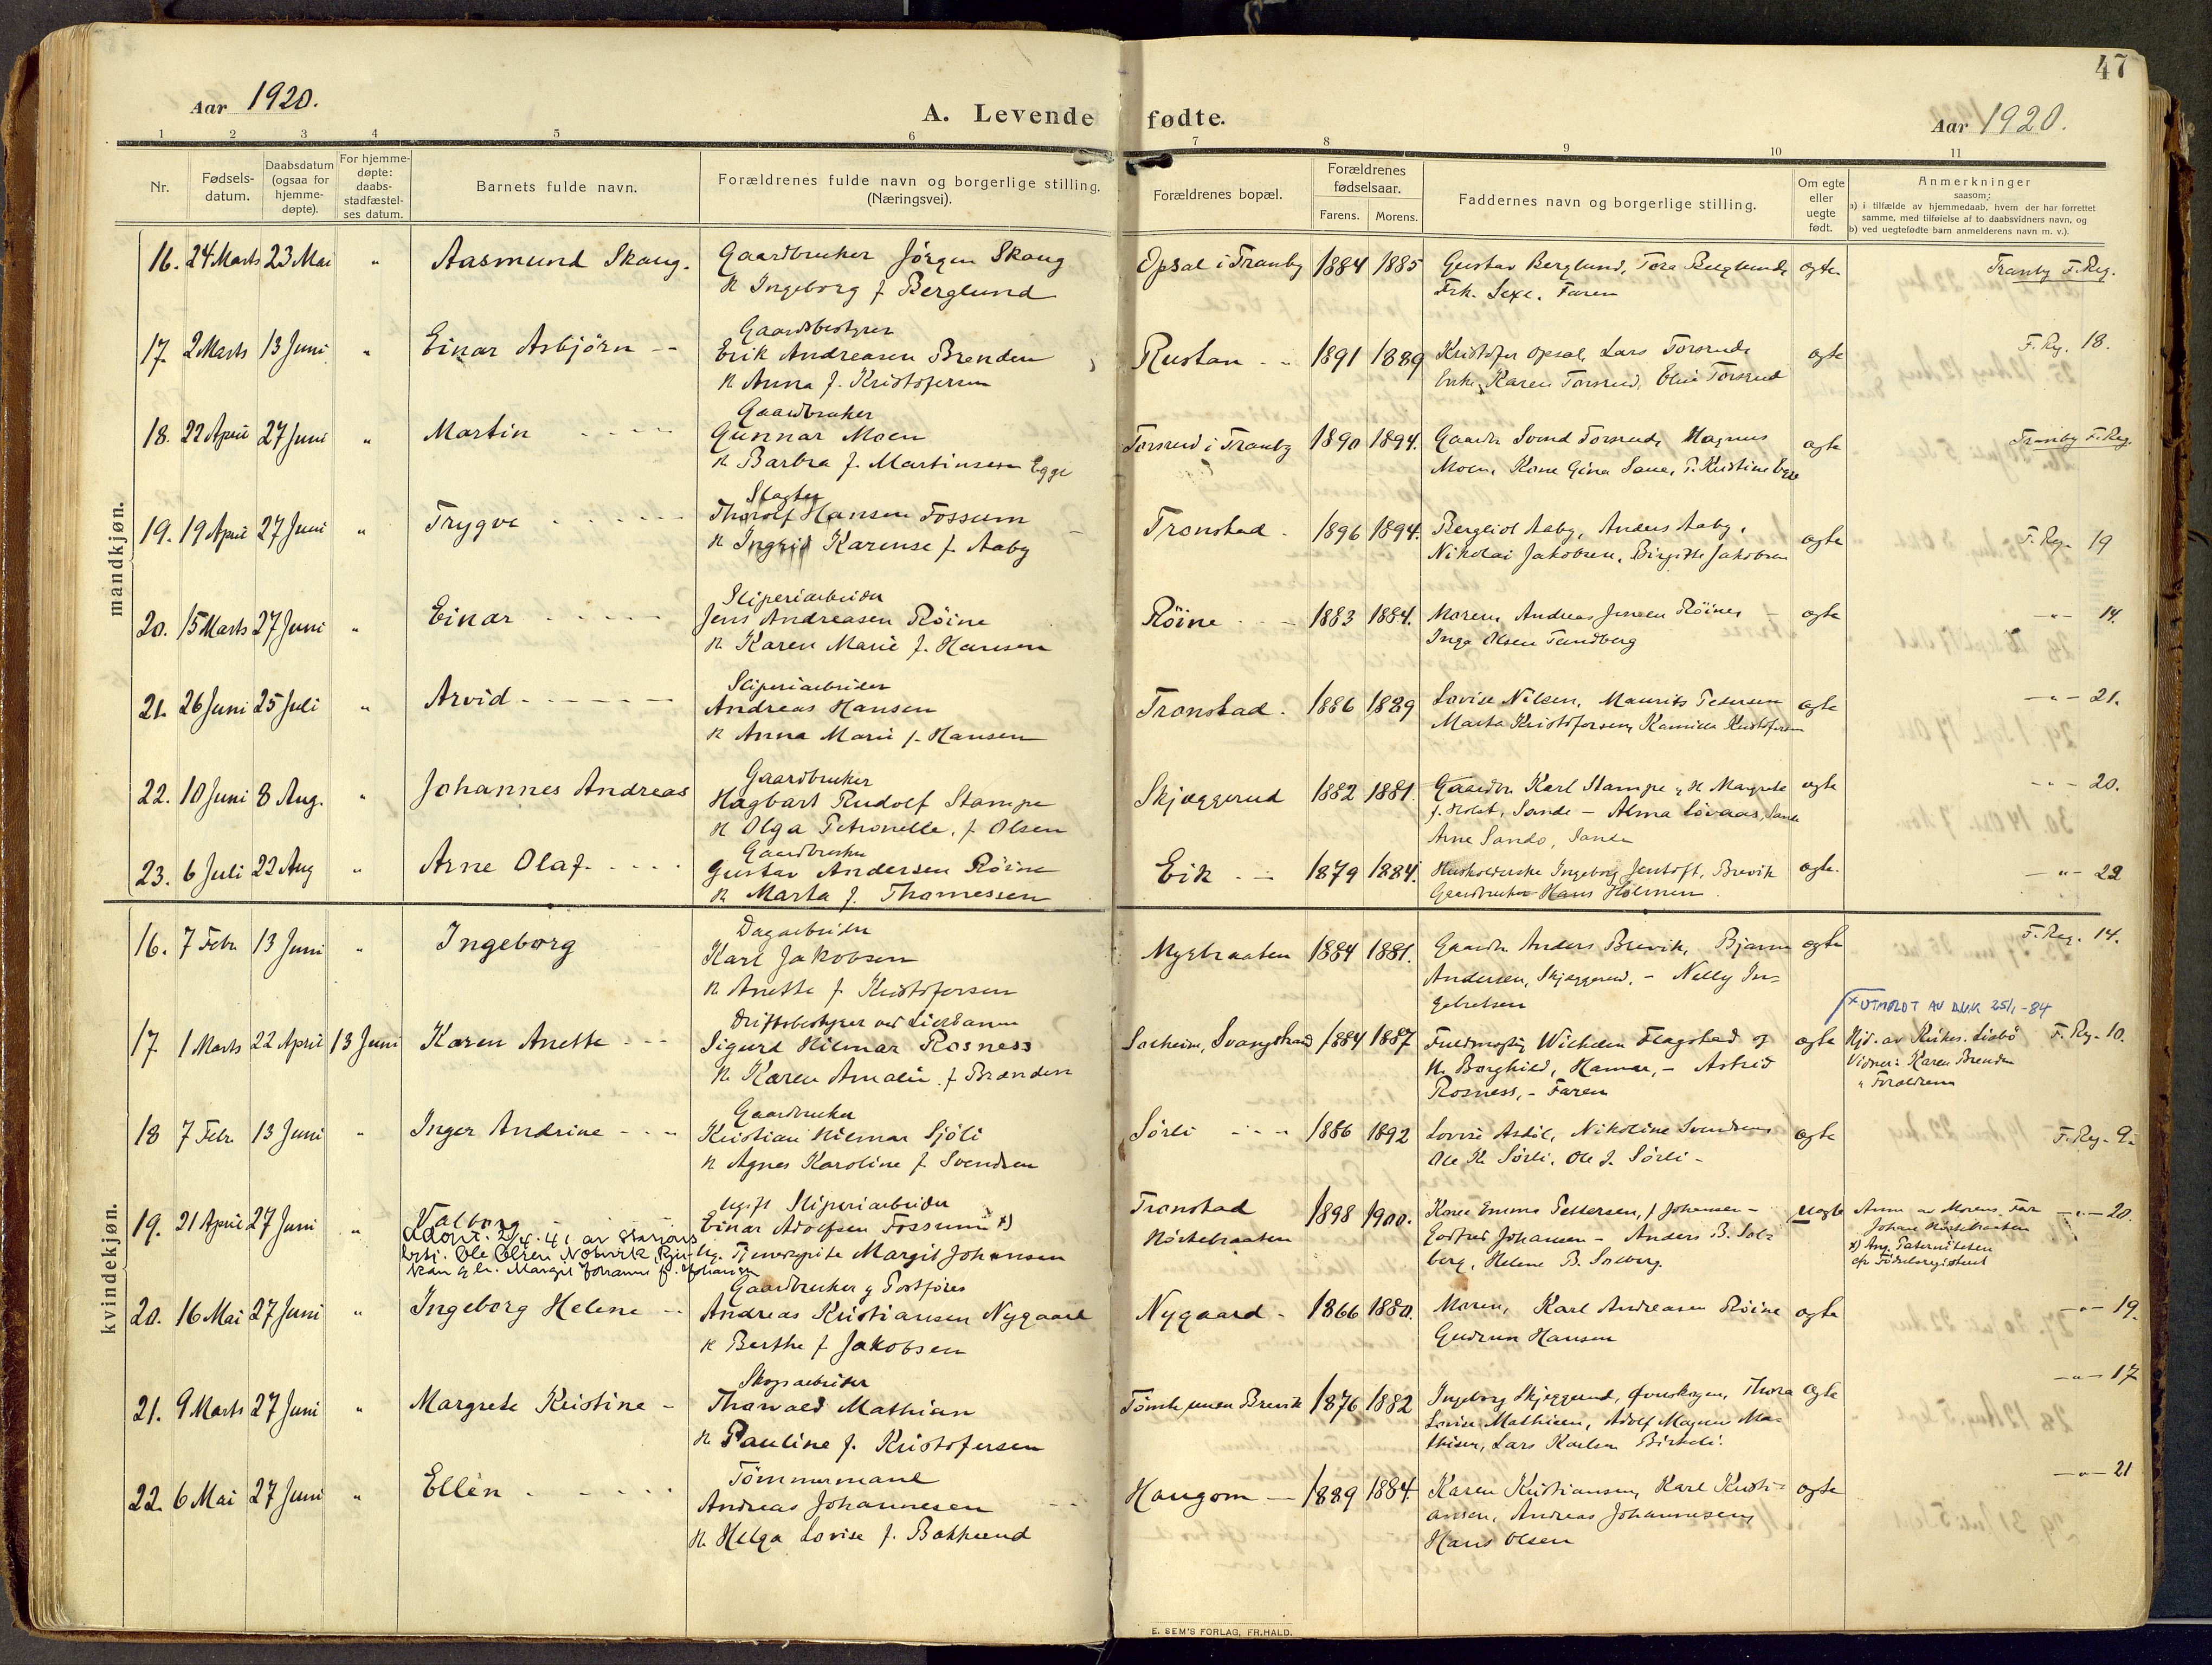 47
Aar 1920.
A. Levende fødte.
Aar 1920.
1 2 3 4 5 6 7 8 9 10 11
Nr.
Fødsels-
datum.
Daabsdatum
(ogsaa for
hjemme-
døpte).
For hjemme-
døpte:
daabs-
stadfæstel-
ses datum.
Barnets fulde navn.
Forældrenes fulde navn og borgerlige stilling.
(Næringsvei).
Forældrenes bopæl.
Forældrenes
fødselsaar.
Farens. Morens.
Faddernes navn og borgerlige stilling.
Om egte
eller
uegte
født.
Anmerkninger
saasom:
a) i tilfælde av hjemmedaab, hvem der har forrettet
samme, med tilføielse af to daabsvidners navn, og
b) ved uegtefødte barn anmelderens navn m. v.).
mandkjøn.
16. 24 Marts 23 Mai " Aasmund Skaug.
Gaardbruker Jørgen Skaug
K Ingeborg f Berglund
Opsal i Tranby 1884 1885
Gustav Berglund, Tora Berglund,
Frk. Sexe. Faren
egte
Tranby F.Reg.
17. 2 Marts 13 Juni " Einar Asbjörn
Gaardsbestyrer
Erik Andreasen Brenden
K Anna f. Kristofersen
Rustan 1891 1889
Kristofer Opsal, Lars Torsrud,
Enke Karen Torsrud, Elise Torsrud
egte
F.Reg. 18.
18. 22 April 27 Juni " Martin
Gaardbruker
Gunnar Moen
K Barbra f. Martinsen Egge
Torsrud i Tranby 1890 1894.
Gaardbr Svend Torsrud, Magnus
Moen, Kone Gina Saue, P. Kristine Egge
egte
Tranby F.Reg.
19. 19 April 27 Juni " Trygve
Slagter
Thorolf Hansen Fossum
K Ingrid Karense f. Aaby
Tronstad 1896 1894.
Bergliot Aaby, Anders Aaby,
Nikolai Jakobsen, Birgitte Jakobsen
egte
F.Reg. 19
20. 15 Marts 27 Juni " Einar
Sliperiarbeider
Jens Andreasen Röine
K Karen Marie f. Hansen
Röine 1883 1884.
Moren, Andreas Jensen Röine,
Inga Olsen Tandberg
egte
—"— 14.
21. 26 Juni 25 Juli " Arvid
Sliperiarbeider
Andreas Hansen
K Anna Marie f. Hansen
Tronstad. 1886 1889
Lovise Nilsen, Maurits Petersen
Marta Kristofersen, Kamilla Kristofersen
egte
—"— 21.
22. 10 Juni 8 Aug. " Johannes Andreas
Gaardbruker
Hagbart Rudolf Stampe
K Olga Petronelle, f. Olsen
Skjæggerud 1882 1881.
Gaardbr. Karl Stampe, K Margrete
f. Holst, Sande – Alma Lövaas, Sande
Arne Sando, Sande
egte
—"— 20.
23. 6 Juli 22 Aug " Arne Olaf
Gaardbruker
Gustav Andersen Röine
K Marta f. Thomessen
Eik 1879 1884.
Husholderske Ingeborg Jentoft, Brevik
Gaardbruker Hans Holmen
egte.
—"— 22
kvindekjøn.
16. 7 Febr. 13 Juni " Ingeborg
Dagarbeider
Karl Jakobsen
K Anette f Kristofersen
Myrbraaten 1884 1881.
Gaardbr Anders Brevik, Bjarne
Andersen, Skjæggerud. – Nelly In-
gebretsen
egte
F.Reg. 14.
17. 1 Marts 22 April 13 Juni Karen Anette
Driftsbestyrer ved Lierbanen
Sigurd Hilmar Rosness
K. Karen Amalie f Brenden
Solheim, Svangstrand 1884 1887
Fuldmegtig Wilhelm Flagstad og
H. Borghild, Hamar, – Astrid
Rosness, – Faren
egte
x UTMELDT AV DNK 25/1-84
Hjd. av Kirkes. Lisbö
Vidner: Karen Brenden
" Forældrene
F.Reg. 10.
18 7 Febr. 13 Juni " Inger Andrine
Gaardbruker
Kristian Hilmar Sjöli
K Agnes Karoline f Svendsen
Sörli 1886 1892
Lovise Asdöl, Nikoline Svendsen,
Ole K. Sörli, Ole J. Sörli –
egte
F.Reg. 9.
19. 21 April 27 Juni " Valborg
Adopt. 2/4.41 av Stasjons
Ole Olsen
Margit Johanne f. Johansen
Ugift Sliperiarbeider
Einar Adolfsen Fossum x)
Ug. Tjenestepike Margit Johansen
Tronstad
Hörtebraaten
1898 1900.
Karen Emma Pettersen, f Johansen –
Godfred Johansen – Anders B. Sol-
berg, Helene B. Solberg.
uegte
Anm av Morens Far
Johan Hörtebraaten
x) Ang. Paterniteten
cfr Födselsregisteret
—"— 20.
20. 16 Mai 27 Juni " Ingeborg Helene
Gaardbruker & Postförer
Andreas Kristiansen Nygaard
K Berthe f Jakobsen
Nygaard 1866 1880.
Moren, Karl Andreasen Röine
Gudrun Hansen
egte
—"— 19.
21. 9 Marts 27 Juni " Margrete Kristine
Skogsarbeider
Thorvald Mathisen
K. Pauline f. Kristofersen
1876 1882
Ingeborg Skjæggerud, Överskogen, Thora
Lovise Mathisen, Adolf Magnus Ma-
thisen, Lars Karlsen Birkeli.
egte
—"— 17
22. 6 Mai 27 Juni " Ellen
Tömmermand
Andreas Johannesen
K. Helga Lovise f. Bakkerud
Haugom 1889 1884.
Karen Kristiansen, Karl Kristi-
ansen, Andreas Johannesen,
Hans Olsen
egte
—"— 21
E. SEM'S FORLAG, FR.HALD.